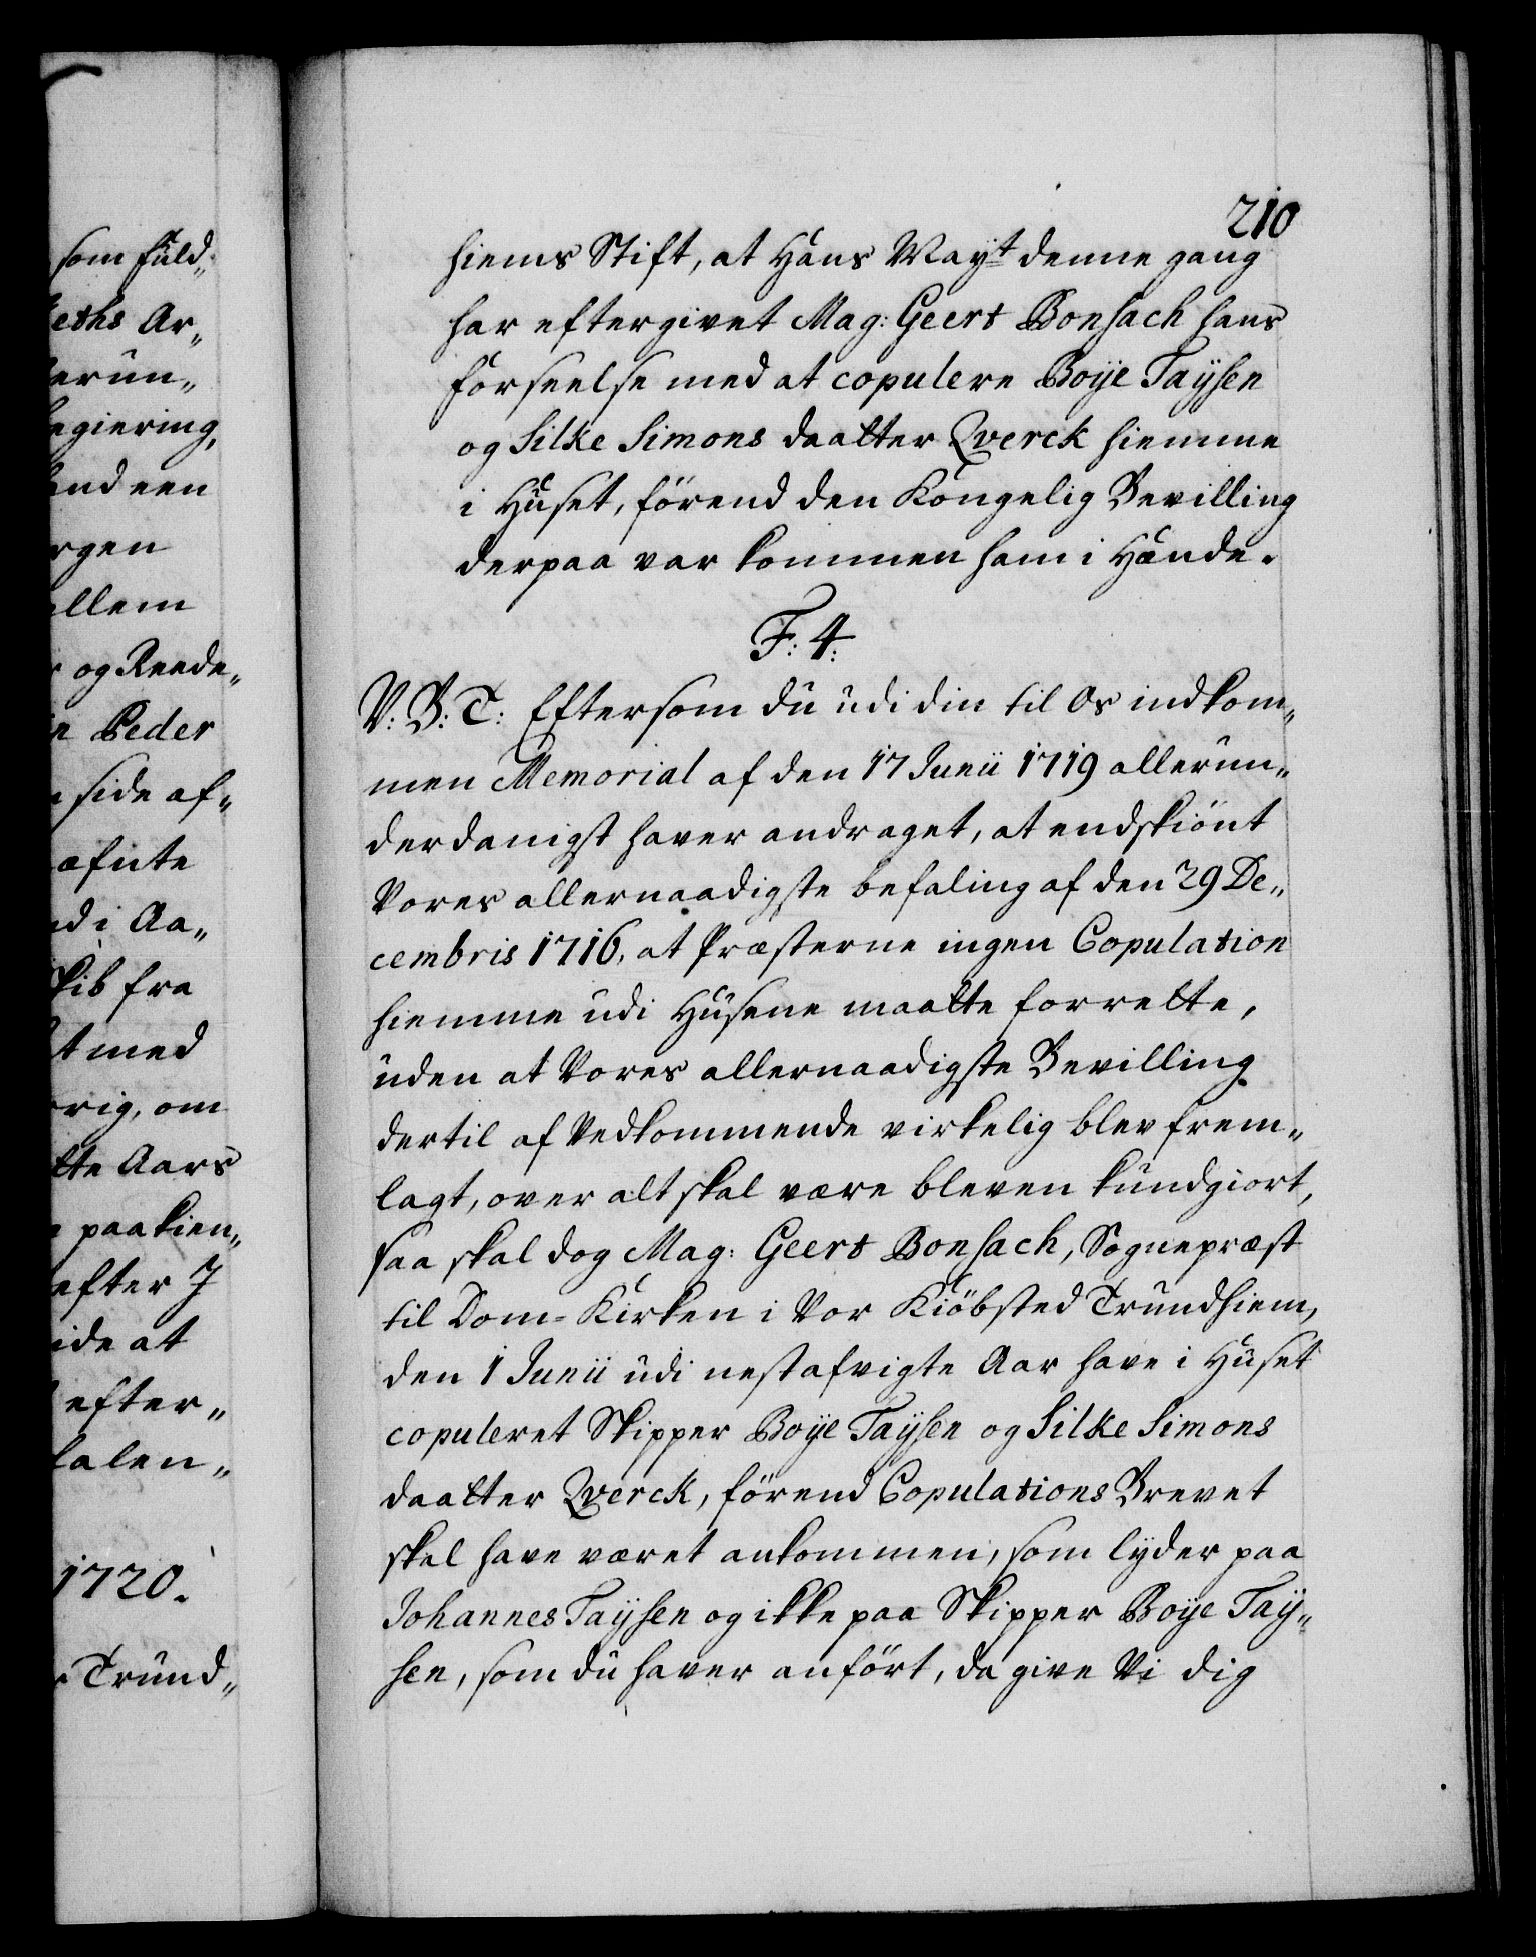 som fuld„
eths Ar„
erun„
egiering,
nd een
rgen
llem
og Reede„
n Peder
side af„
æfnte
d i Aa„
kib fra
t med
rig, om
tte Aars
paakien„
efter I
ide at
efter„
alen„
1720.
Trund„
210
hiems Stift, at Hans Mayt denne gang
har eftergivet Mag: Geert Bonsach hans
forseelse med at copulere Boye Taysen
og Silke Simons daatter Qverck hiemme
i Huset, förend den Kongelig Bevilling
derpaa var kommen ham i Hænde.
F: 4:
V: B: T: Eftersom du udi din til Os indkom„
men Memorial af den 17 Junii 1719 allerun„
derdanigst haver andraget, at endskiönt
Vores allernaadigste befaling af den 29 De„
cembris 1716, at Præsterne ingen Copulation
hiemme udi Husene maatte forrette,
uden at Vores allernaadigste Bevilling
dertil af Vedkommende virkelig blev frem„
lagt, over alt skal være bleven kundgiort,
saa skal dog Mag: Geert Bonsach, Sognepræst
til Dom-Kirken i Vor Kiöbsted Trundhiem,
den 1 Junii udi nestafvigte Aar have i Huset
copuleret Skipper Boye Taysen og Silke Simons
daatter Qverck, förend Copulations Brevet
skal have været ankommen, som lyder paa
Johannes Taysen og ikke paa Skipper Boye Tay„
sen, som du haver anfört, da give Vi dig